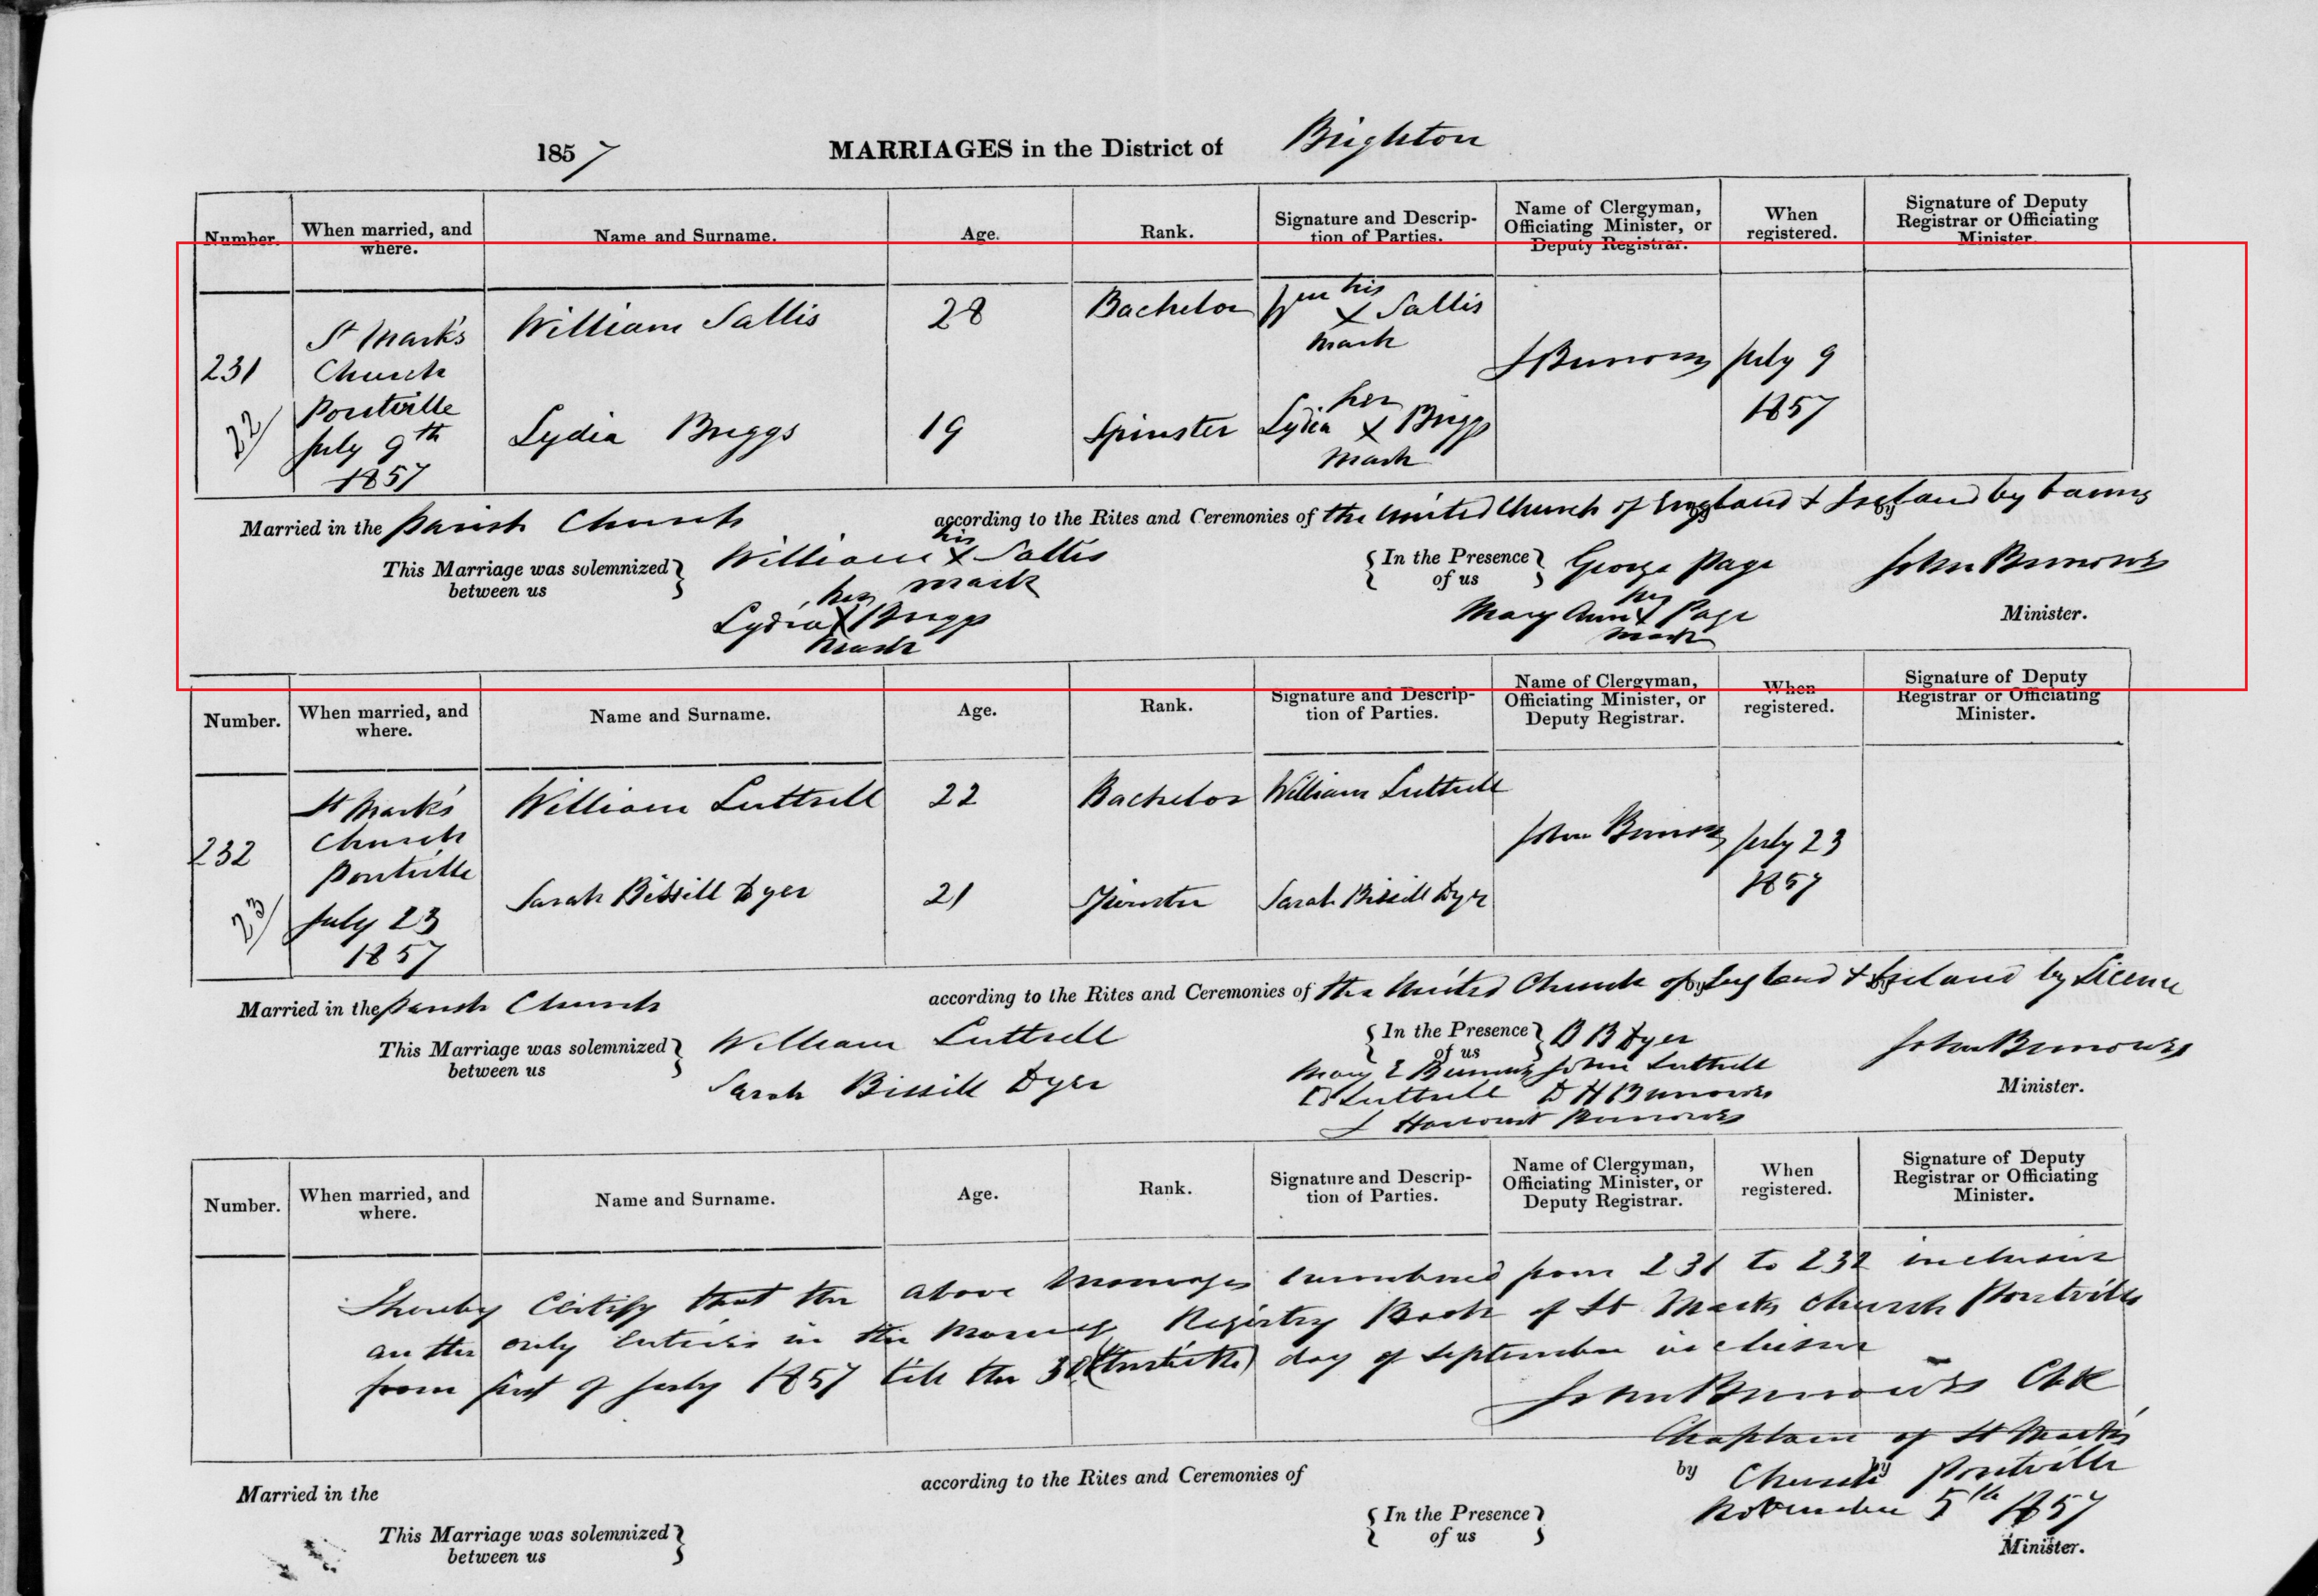 1857 MARRIAGES in the District of Brighton
Number. When married, and where. Name and Surname. Age. Rank. Signature and Descrip- tion of Parties. Name of Clergyman, Officiating Minister, or Deputy Registrar. When registered. Signature of Deputy Registrar or Officiating Minister.
231
22/
St Mark's
Church
Pontville
July 9th
1857
William Sallis 28 Bachelor Wm his X Sallis mark
Lydia Briggs 19 Spinster Lydia her X Briggs mark
J Burrowes July 9
1857
Married in the Parish Church according to the Rites and Ceremonies of the United Church of England & Ireland by banns
This Marriage was solemnized between us
William his X Sallis mark
Lydia her X Briggs mark
In the Presence of us George Page
Mary Ann her X Page mark
John Burrowes
Minister.
Number. When married, and where. Name and Surname. Age. Rank. Signature and Descrip- tion of Parties. Name of Clergyman, Officiating Minister, or Deputy Registrar. When registered. Signature of Deputy Registrar or Officiating Minister.
232
23/
St Mark's
Church
Pontville
July 23
1857
William Luttrell 22 Bachelor William Luttrell
Sarah Bissill Dyer 21 Spinster Sarah Bissill Dyer
John Burrowes July 23
1857
Married in the Parish Church according to the Rites and Ceremonies of the United Church of England & Ireland by Licence
This Marriage was solemnized between us
William Luttrell
Sarah Bissill Dyer
In the Presence of us B B Dyer
Mary E Burrowes John Luttrell
Luttrell D H Burrowes
J Harcourt Burrowes
John Burrowes
Minister.
Number. When married, and where. Name and Surname. Age. Rank. Signature and Descrip- tion of Parties. Name of Clergyman, Officiating Minister, or Deputy Registrar. When registered. Signature of Deputy Registrar or Officiating Minister.
I hereby Certify that the above Marriages numbered from 231 to 232 inclusive
are the only entries in the Marriage Registry Book of St Marks Church Pontville
from first of July 1857 till the 30 (thirtieth) day of September inclusive
John Burrowes Clk
Chaplain of St Mark's
Church Pontville
November 5th 1857
Married in the according to the Rites and Ceremonies of by by
This Marriage was solemnized between us
In the Presence of us
Minister.